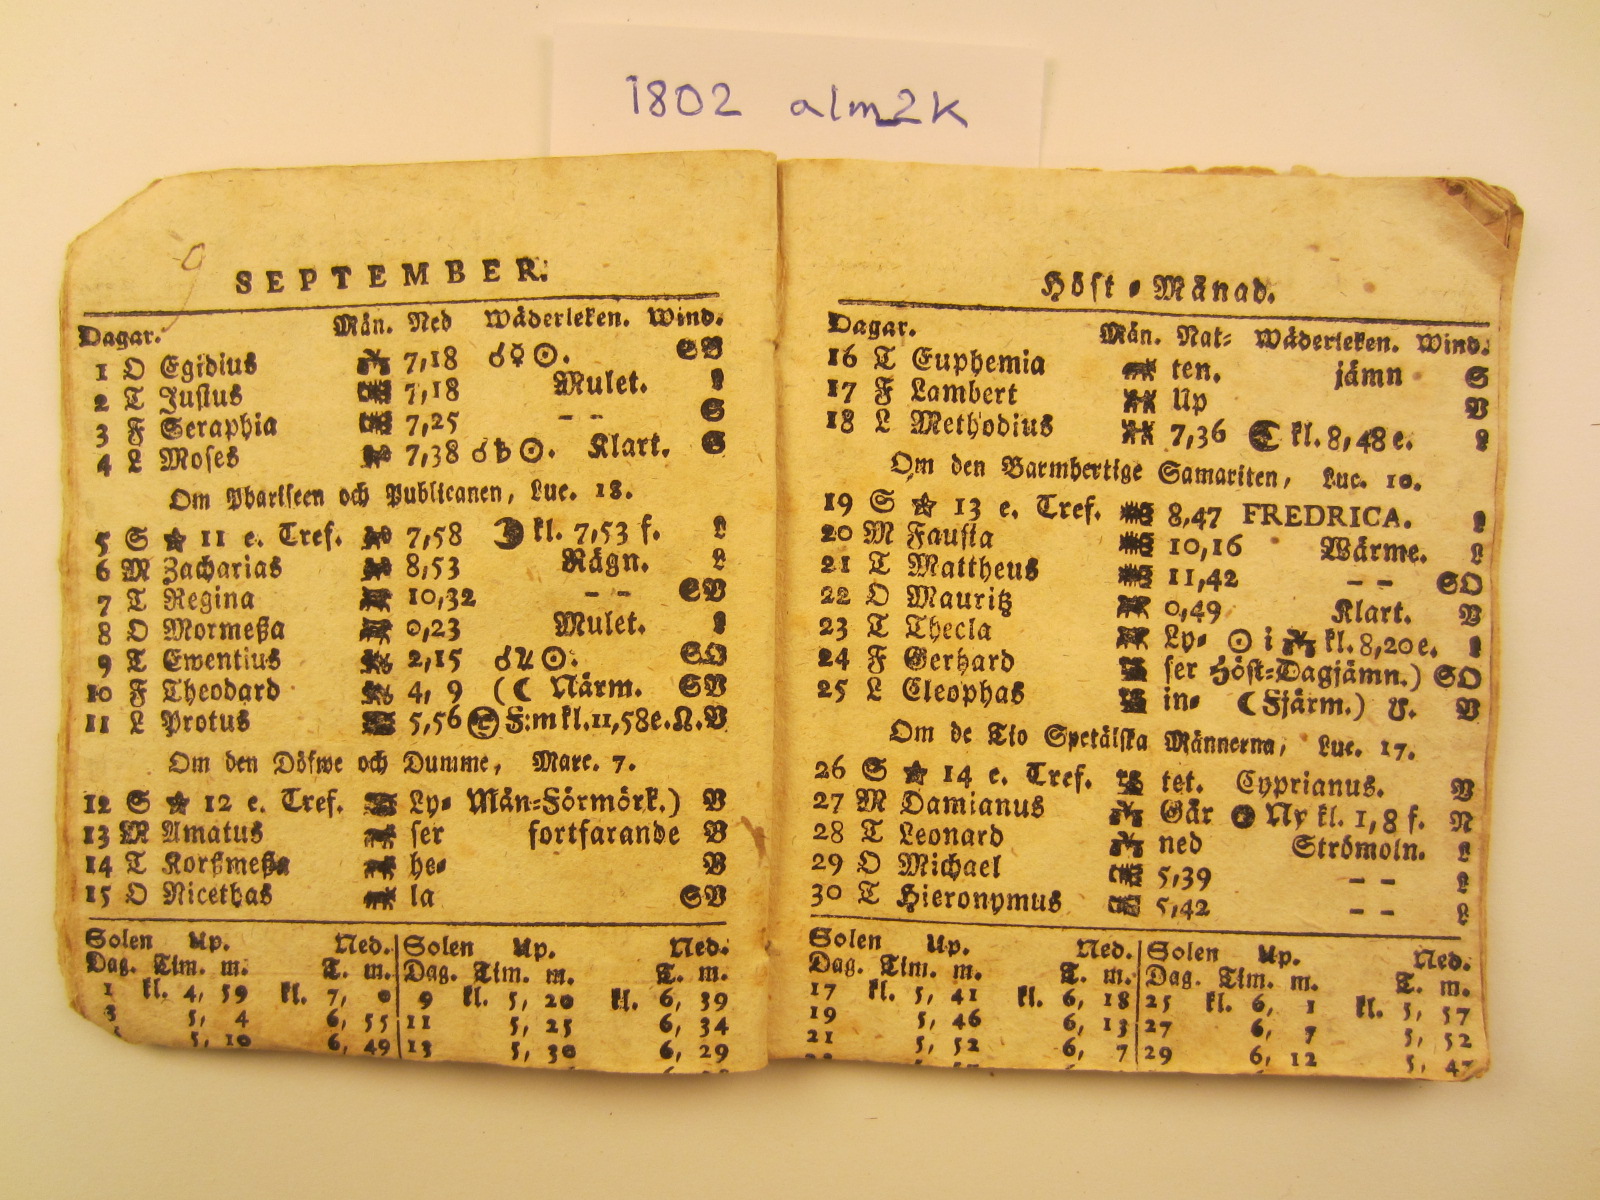 1802 alm2k
9
SEPTEMBER.
Dagar. Mån. Ned Wäderleken. Wind.
1 O Egidius 7,18 ☌☿☉. SV
2 T Justus 7,18 Mulet. L
3 F Seraphia 7,25 - - S
4 L Moses 7,38 ☌♄☉. Klart. S
Om Phariseen och Publicanen, Luc. 18.
5 S ☆ 11 e. Tref. 7,58 ☽ kl. 7,53 f. L
6 M Zacharias 8,53 Rägn. L
7 T Regina 10,32 - - SV
8 O Mormeßa 0,23 Mulet. L
9 T Ewentius 2,15 ☌♃☉. SO
10 F Theodard 4, 9 (☾ Närm. SV
11 L Protus 5,56 F:m kl. 11,58 e. ☊. V
Om den Döfwe och Dumme, Marc. 7.
12 S ☆ 12 e. Tref. Ly- Mån-Förmörk.) V
13 M Amatus ser fortfarande V
14 T Korßmeßa he- V
15 O Nicethas la SV
Solen Up. Ned. Solen Up. Ned.
Dag. Tim. m. T. m. Dag. Tim. m. T. m.
1 kl. 4, 59 kl. 7, 0 9 kl. 5, 20 kl. 6, 39
3 5, 4 6, 55 11 5, 25 6, 34
5, 10 6, 49 13 5, 30 6, 29
Höst-Månad.
Dagar. Mån. Nat- Wäderleken. Wind.
16 T Euphemia ten. jämn S
17 F Lambert Up V
18 L Methodius 7,36 ☾ kl. 8,48 e. L
Om den Barmhertige Samariten, Luc. 10.
19 S ☆ 13 e. Tref. 8,47 FREDRICA. L
20 M Fausta 10,16 Wärme. L
21 T Mattheus 11,42 - - SO
22 O Mauritz 0,49 Klart. V
23 T Thecla Ly- ☉ i ♎ kl. 8,20 e. L
24 F Gerhard ser Höst-Dagjämn.) SO
25 L Cleophas in- ☾ Fjärm.) ☋. V
Om de Tio Spetälska Männerna, Luc. 17.
26 S ☆ 14 e. Tref. tet. Cyprianus. V
27 M Damianus Går ● Ny kl. 1,8 f. N
28 T Leonard ned Strömoln. L
29 O Michael 5,39 - - L
30 T Hieronymus 5,42 - - L
Solen Up. Ned. Solen Up. Ned.
Dag. Tim. m. T. m. Dag. Tim. m. T. m.
17 kl. 5, 41 kl. 6, 18 25 kl. 6, 1 kl. 5, 57
19 5, 46 6, 13 27 6, 7 5, 52
21 5, 52 6, 7 29 6, 12 5, 47